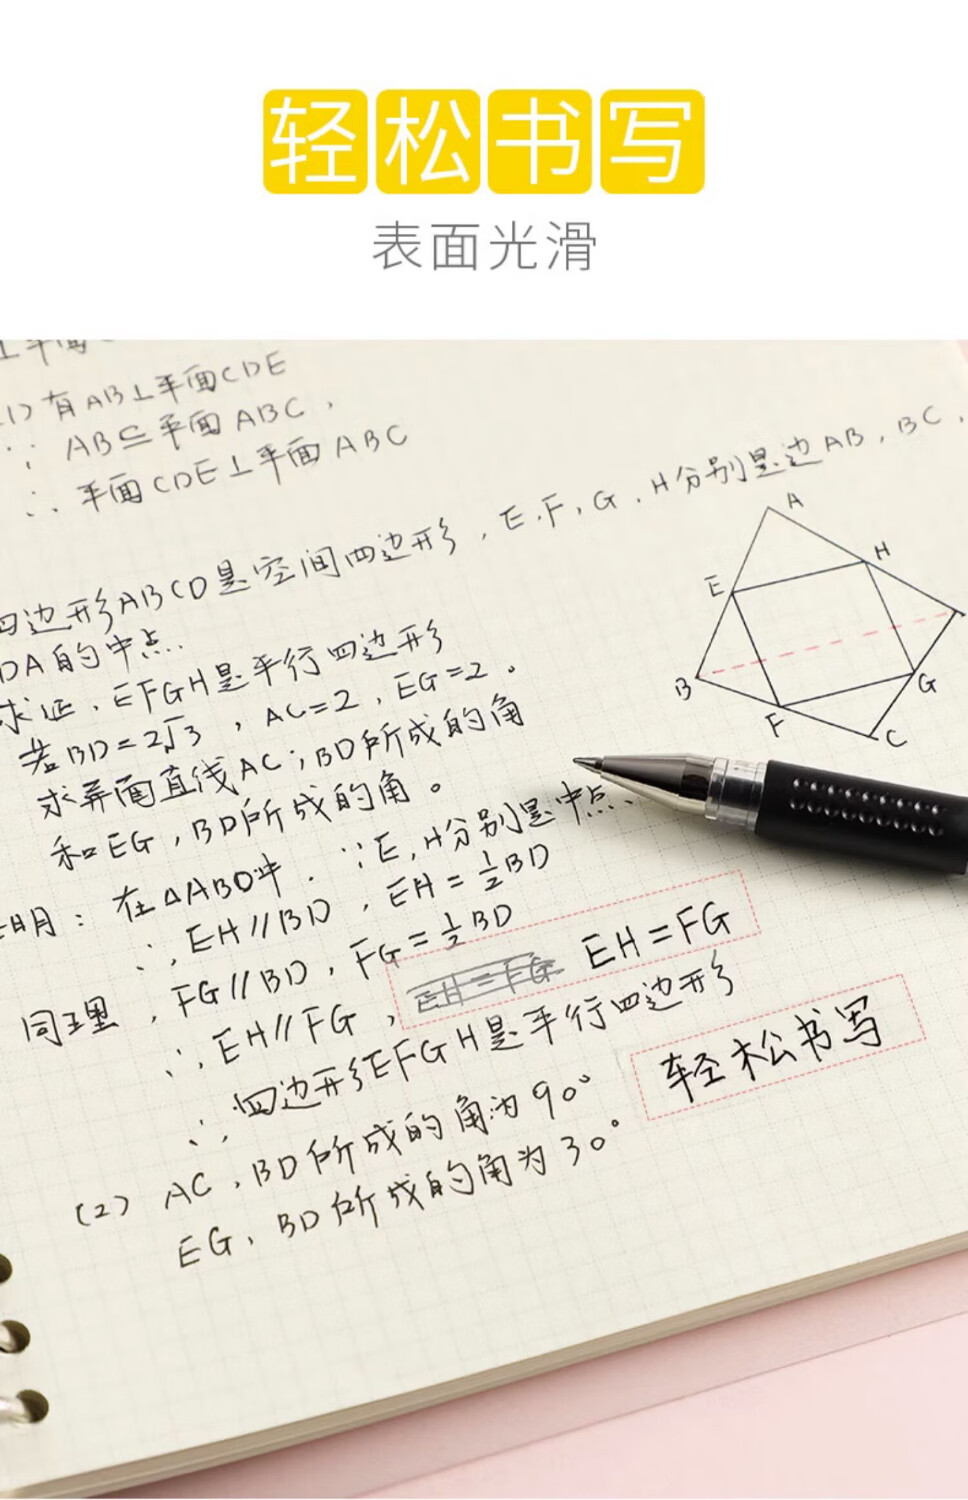 轻松书写
表面光滑
(1) 有AB⊥平面CDE
∵ AB⊆平面ABC，
∴ 平面CDE⊥平面ABC
四边形ABCD是空间四边形，E，F，G，H分别是边AB，BC，
DA的中点
求证，EFGH是平行四边形
若BD=2√3，AC=2，EG=2。
求异面直线AC；BD所成的角
和EG，BD所成的角。
明：在△ABD中．∵E，H分别是中点、
∴EH∥BD，EH=½BD
同理，FG∥BD，FG=½BD
∴EH∥FG，EH=FG EH=FG
∴四边形EFGH是平行四边形
轻松书写
(2) AC，BD所成的角为90°
EG、BD所成的角为30°
A
H
E
B
G
F
C